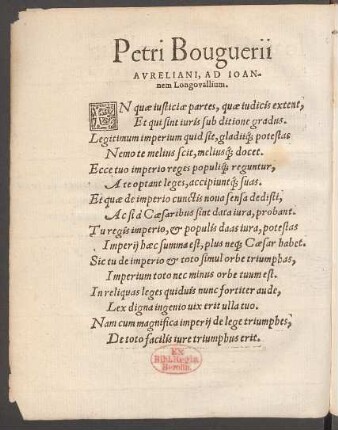 Petri Bouguerii
AVRELIANI, AD IOAN-
nem Longovallium.
EN quæ iusticiæ partes, quæ iudicis extent,
Et qui sint iuris sub ditione gradus.
Legitimum imperium quid sit, gladiiq; potestas
Nemo te melius scit, meliusq; docet.
Ecce tuo imperio reges populiq; reguntur,
A te optant leges, accipiuntq; suas.
Et quæ de imperio cunctis noua sensa dedisti,
Ac si à Cæsaribus sint data iura, probant.
Tu regis imperio, & populis das iura, potestas
Imperij hæc summa est, plus neq; Cæsar habet.
Sic tu de imperio & toto simul orbe triumphas,
Imperium toto nec minus orbe tuum est.
In reliquas leges quiduis nunc fortiter aude,
Lex digna ingenio uix erit ulla tuo.
Nam cum magnifica imperij de lege triumphes,
De toto facilis iure triumphus erit.
EX
Bibl. Regia
Berolin.